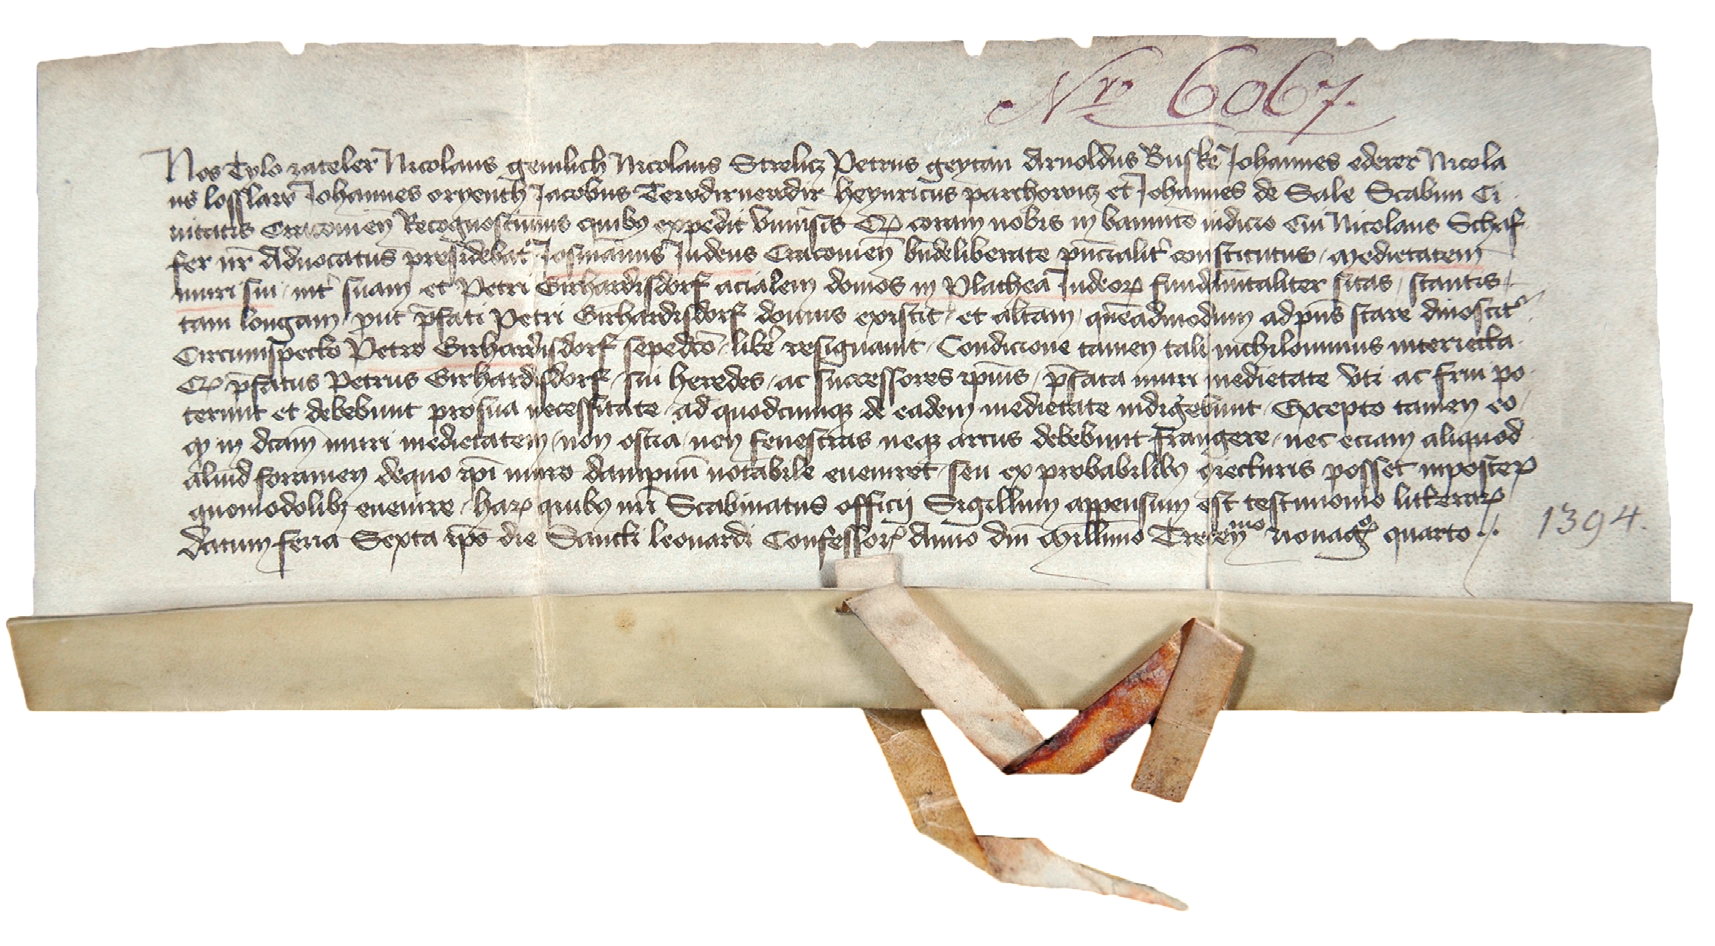 Nro 6067.
Nos Tylo zateler Nicolaus gemlich Nicolaus Strelicz Petrus geytan Arnoldus Buske Johannes ederer Nicola
us Johannes Jacobus heynricus parchowicz et Johannes de Sale Scabini Ci
uitatis Cracouien Recognoscimus quibus expedit vniuersis Quod coram nobis in bannito iudicio Cui Nicolaus Schaf
fer nr Aduocatus presidebat Josmannus Judeus Cracouien constitutus medietatem
muri sui int suam et Petri Girhardisdorf acialem domos in Plathea Judeorum fundamentaliter sitas stantis
tam longam put pfati Petri Girhardisdorf domus existit et altam quemadmodum ad pns stare dinoscit
Circumspecto Petro Girhardisdorf sepedco libe resignauit Condicione tamen tali nichilominus interiecta
Quod pfatus Petrus Girhardisdorf sui heredes ac successores ipius pfata muri medietate vti ac frui po
terunt et debebunt pro sua necessitate ad quodcumque de eadem medietate indigebunt Excepto tamen eo
quod in dcam muri medietatem non ostia non fenestras neque arcus debebunt frangere nec eciam aliquod
aliud foramen de quo ipi muro dampnum notabile eueniret seu ex probabilibus posset inposterum
quomodolibet euenire harum quibus nri Scabinatus officij Sigillum appensum est testimonio litterarum
Datum feria Sexta ipo die Sancti leonardi Confessoris Anno dni Millimo Trecenmo nonagο quarto
1394.